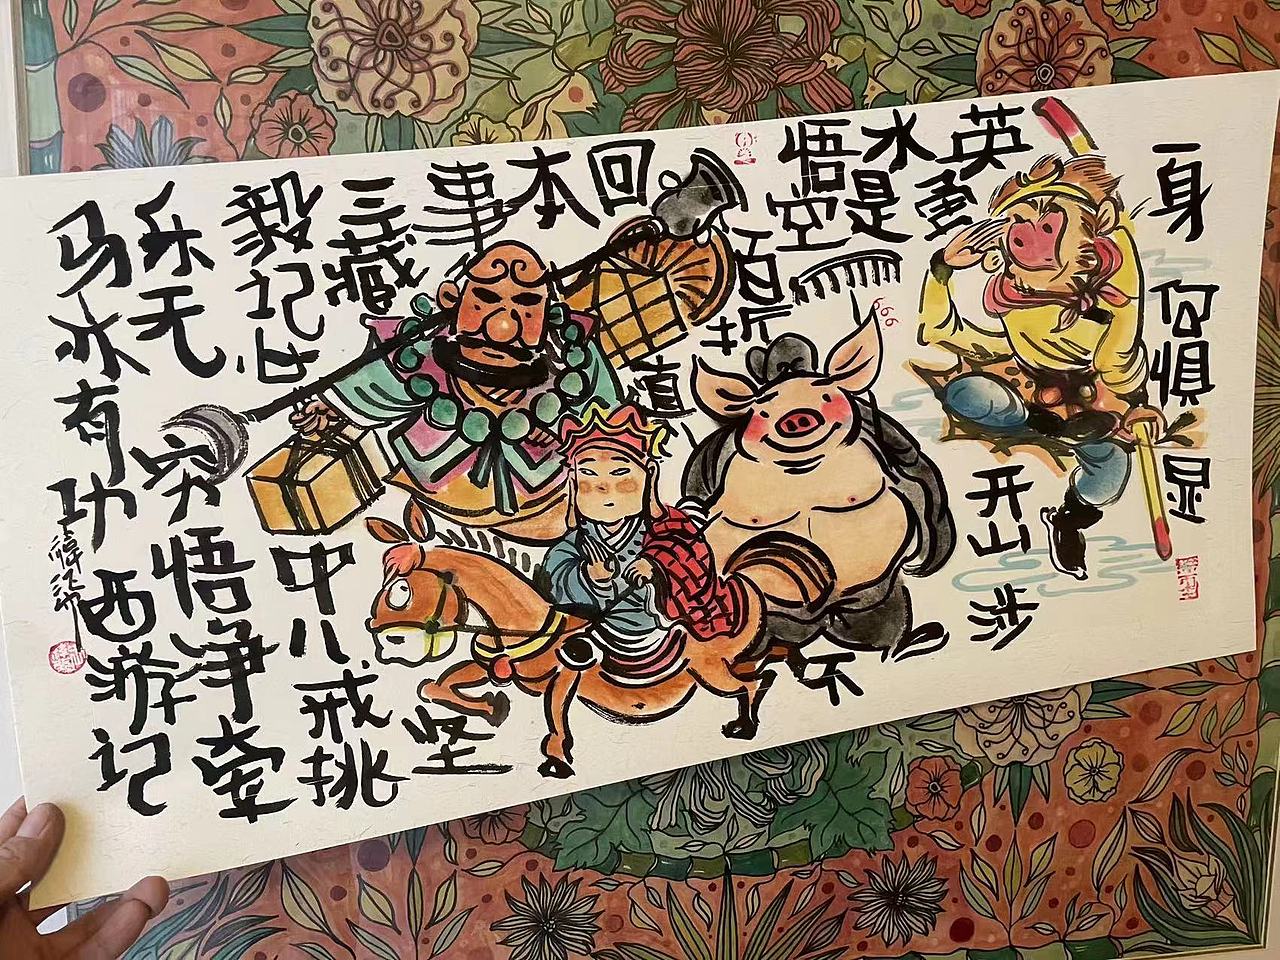 一身何惧显
英重开山涉
水是
悟空
百折不
回真
本
事
三藏坚
毅记心中八戒挑
乐无穷悟净牵
马亦有功
西游记
666